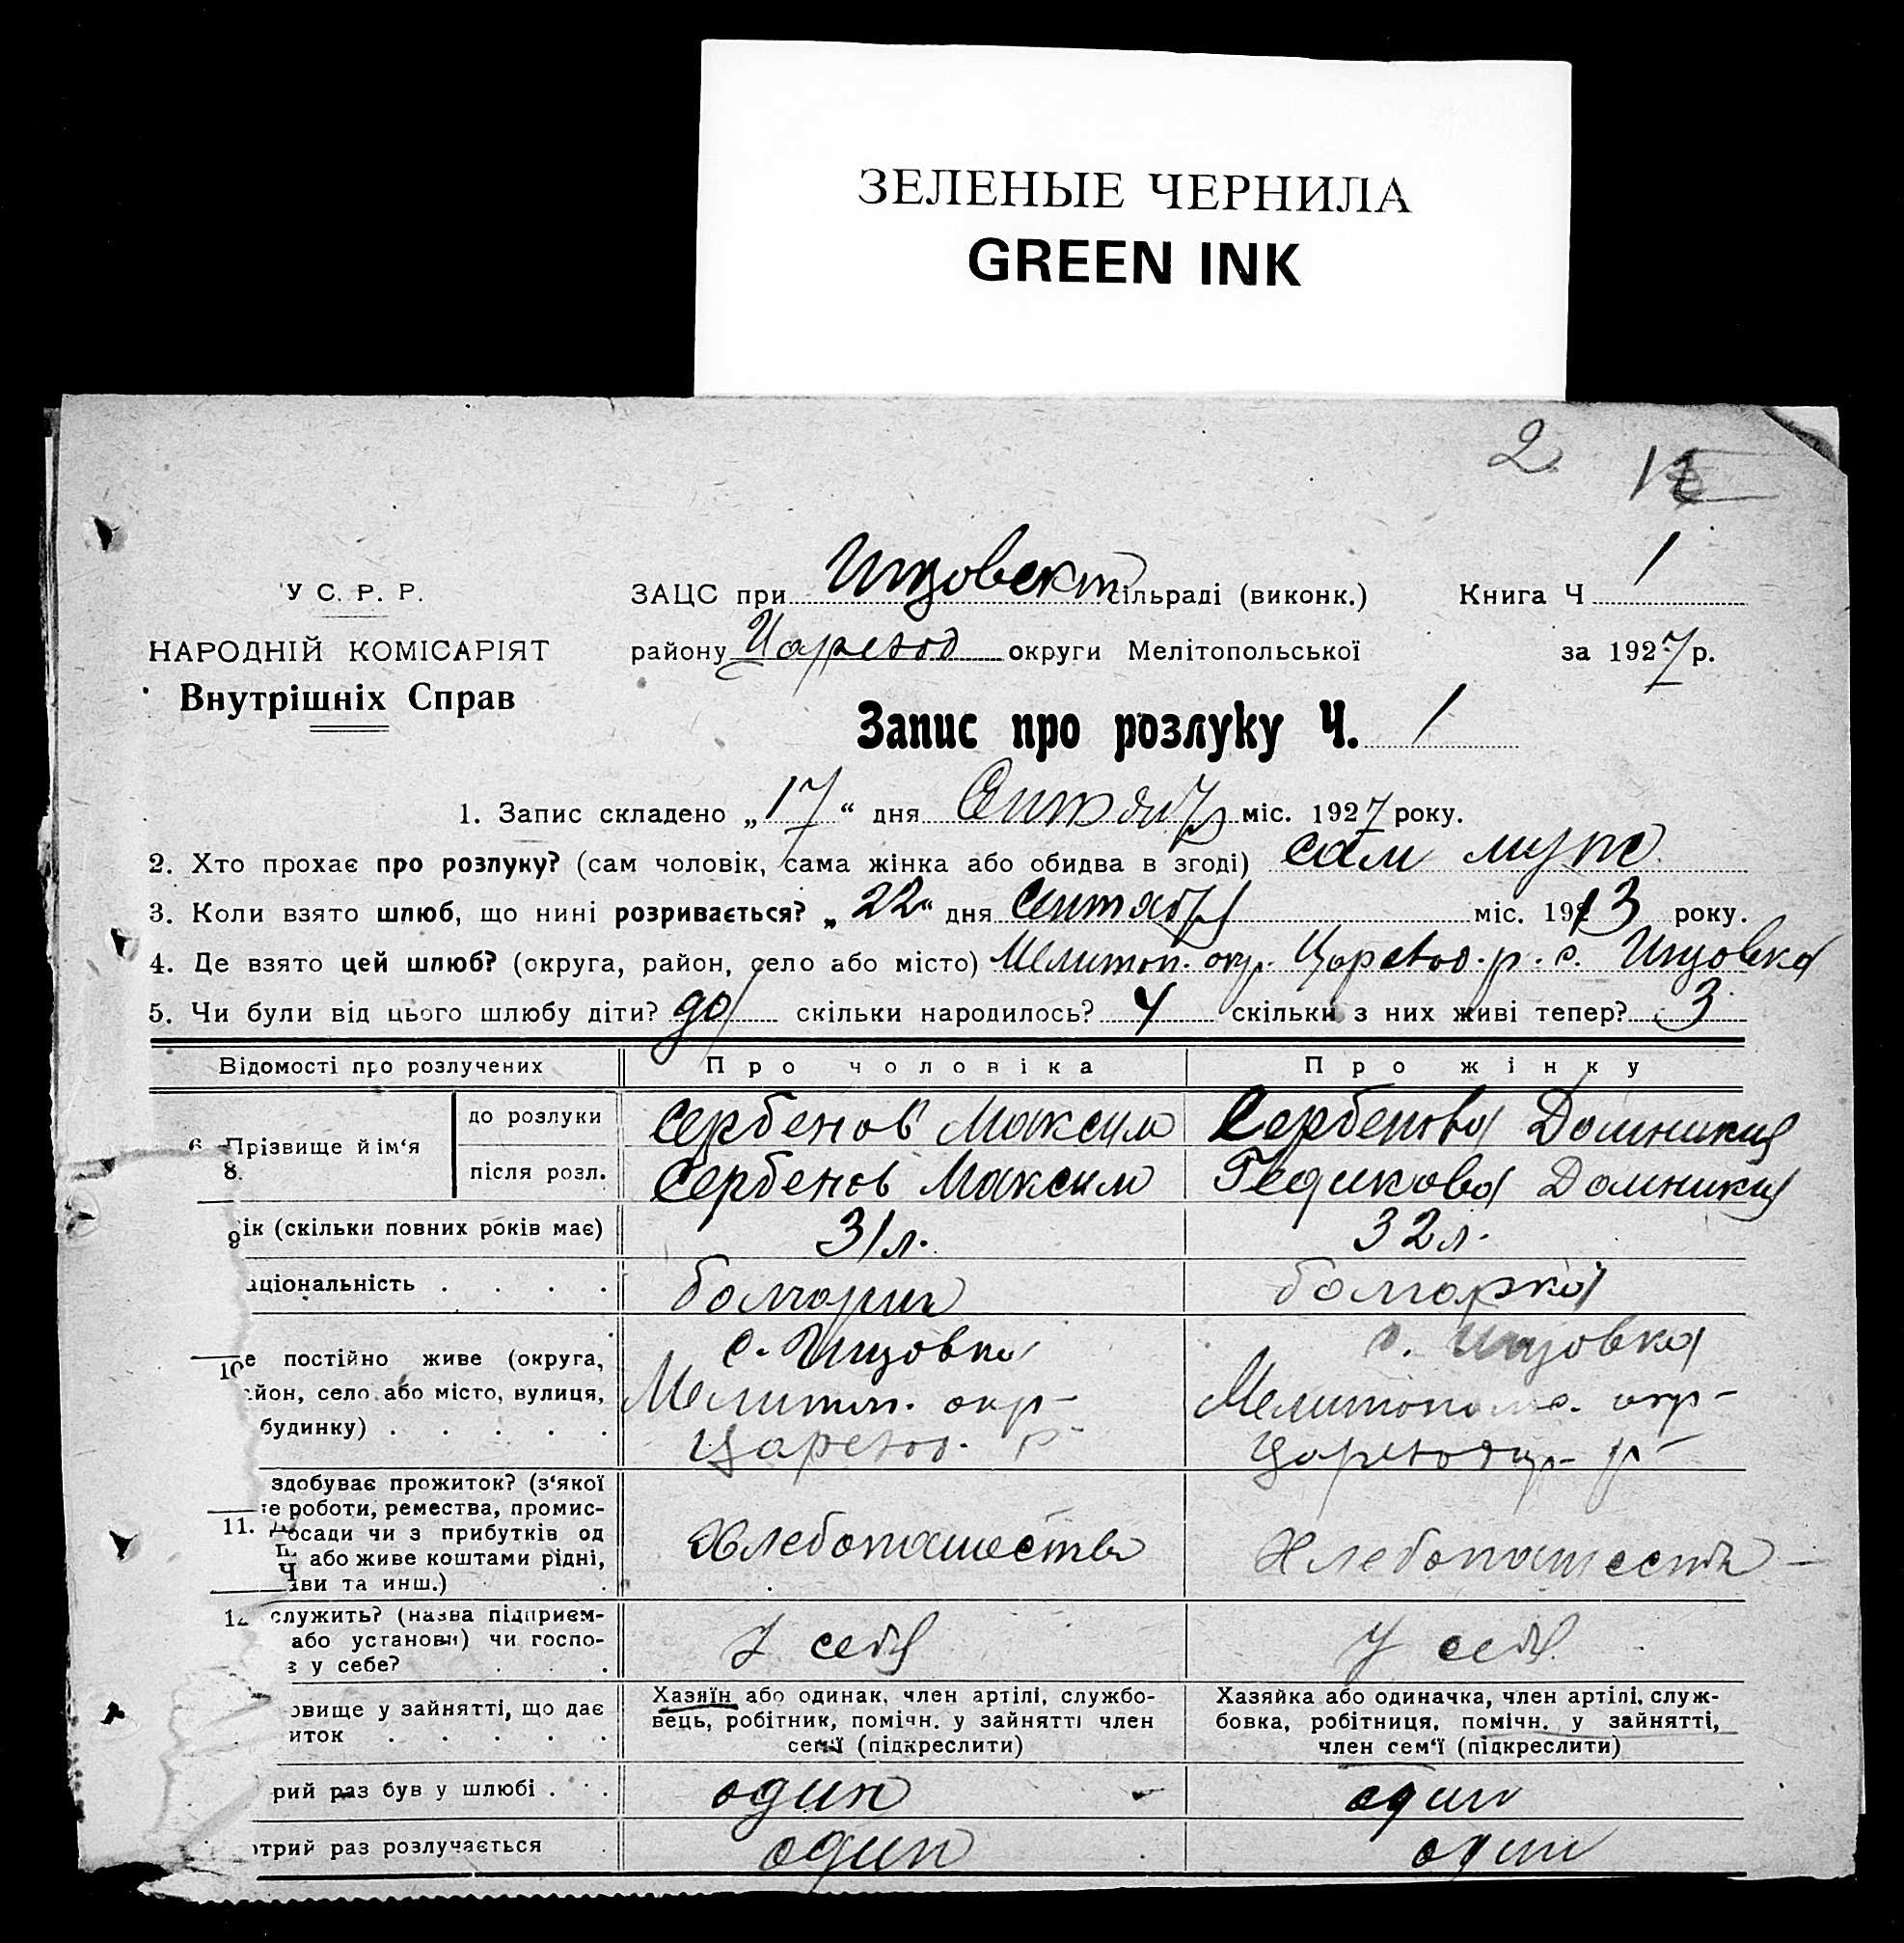 ЗЕЛЕНЫЕ ЧЕРНИЛА
GREEN INK
2
У С. Р. Р.
НАРОДНІЙ КОМІСАРІЯТ
Внутрішніх Справ
ЗАЦС при сільраді (виконк.) Книга Ч 1
району Царевод округи Мелітопольської за 1927 р.
Запис про розлуку Ч. 1
1. Запис складено „17“ дня Сентября міс. 1927 року.
2. Хто прохає про розлуку? (сам чоловік, сама жінка або обидва в згоді) сам муж
3. Коли взято шлюб, що нині розривається? „22“ дня сентября міс. 1913 року.
4. Де взято цей шлюб? (округа, район, село або місто) Мелитоп. окр. Царевод. р. с. Инзовка
5. Чи були від цього шлюбу діти? да скільки народилось? 4 скільки з них живі тепер? 3
Відомості про розлучених Про чоловіка Про жінку
6. Прізвище й ім‘я до розлуки Сербенов Максим Сербенова Домникия
8. після розл. Сербенов Максим Гедикова Домникия
9 ік (скільки повних років має) 31 л. 32 л.
аціональність . . . . болгарин болгарка
10 е постійно живе (округа, с. Инзовка с. Инзовка
йон, село або місто, вулиця, Мелитоп. окр- окр-
будинку) . . . . . Царевод. р- р-
здобуває прожиток? (з‘якої
е роботи, ремества, промис-
11. осади чи з прибутків од Хлебопашества
або живе коштами рідні,
ави та инш.)
12 служить? (назва підприєм-
або установи) чи госпо- У себя У себя
у себе?
овище у зайнятті, що дає Хазяїн або одинак, член артілі, службо- Хазяйка або одиначка, член артілі, служ-
иток . . . . . вець, робітник, помічн. у зайнятті член бовка, робітниця, помічн. у зайнятті,
сем‘ї (підкреслити) член сем‘ї (підкреслити)
рий раз був у шлюбі . . один один
отрий раз розлучається один один